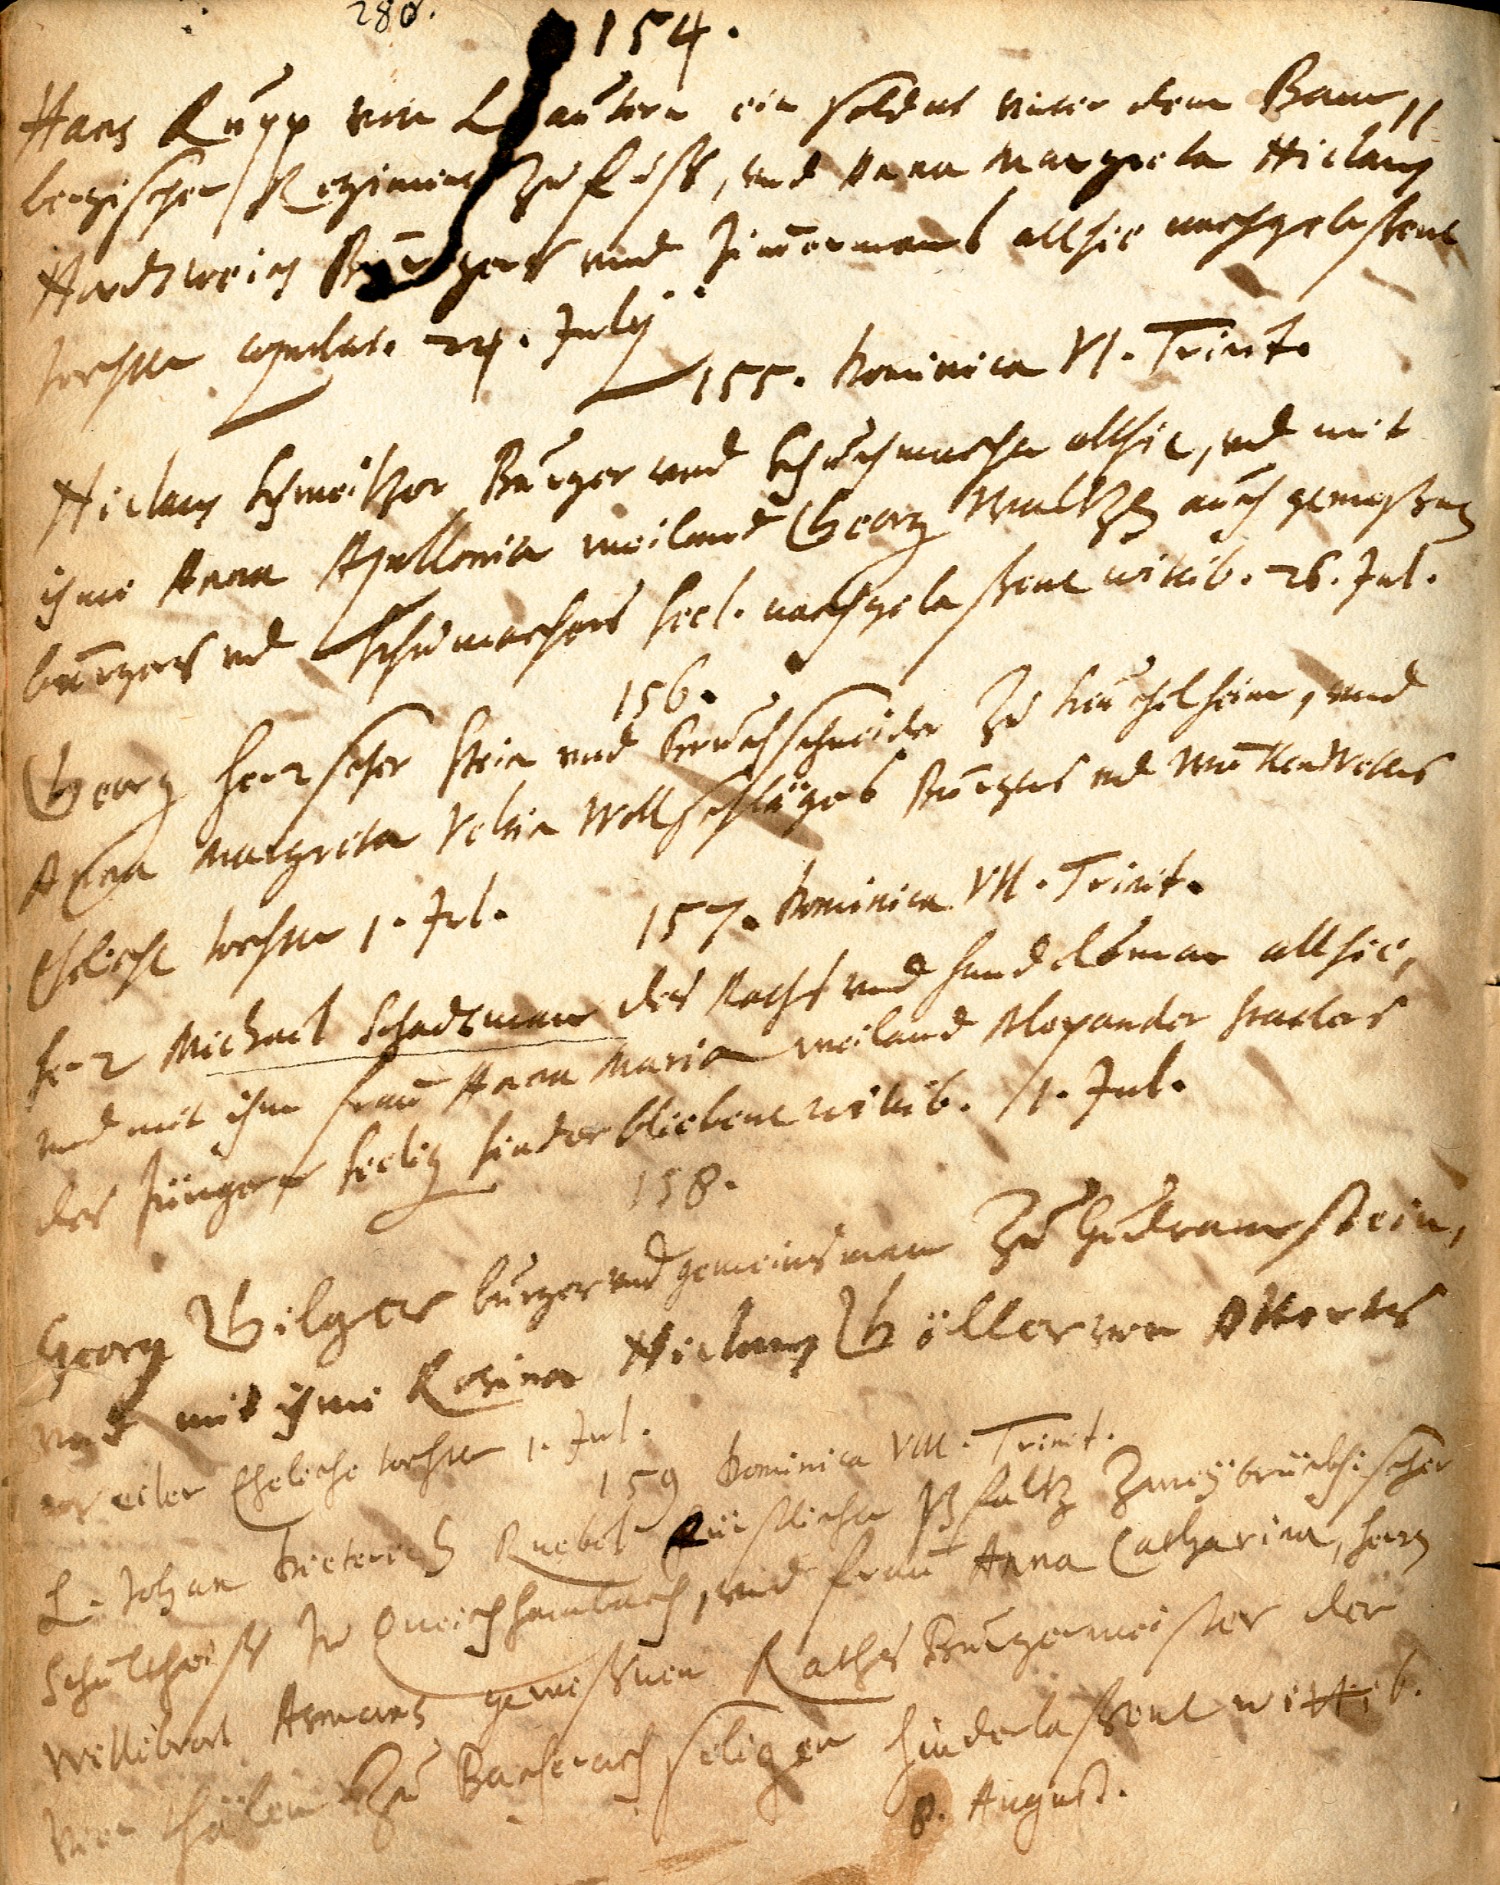 280.
154.
Hans Rupp von Lautern ein Soldat unter dem Bam„
bergischen Regiment zu fuß, und Anna Margreta Niclaus
Hardtweich Bürgers und Zimmermans allhie nachgelaßene
tochter copulat. 24. July
155. Dominica VI. Trinit.
Niclaus Schweitzer Burger und Schuchmacher allhie, und mit
ihme Anna Apollonia weiland Georg auch geweßenen
bürgers und Schumachers seel. nachgelaßene wittib. 26. Jul.
156.
Georg Herrscher Stein und Bruchschneider zu Heuchelheim, und
Anna Margreta Veltin Wollschlägers Bürgers und
Eheliche tochter 1. Jul.
157. Dominica VII. Trinit.
Herr Michael Schadtman des Raths und handelsman allhie,
und mit ihm Frau Anna Maria weiland Alexander
des Jüngern seelig hinderbliebene wittib. 1. Jul.
158.
Georg Gilger burger und gemeinsman zu Gudramstein,
und mit ihme Rosina Niclaus Göller von Alberts
weiler Eheliche tochter 1. Jul.
159 Dominica VIII. Trinit.
L. Johan Dieterich Knebel Fürstlicher Pfaltz Zweybrückischer
Schultheiß zu Queichhambach, und Frau Anna Catharina, herrn
Willibrort geweßnen Raths Burgermeister der
vier thälen zu Bacherach seligen hinderlaßene wittib.
8. August.